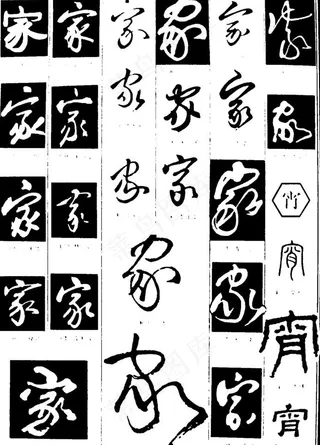 家家家家家家
家家家家家家
家家家家家宵
家家家家宵
家家家宵宵